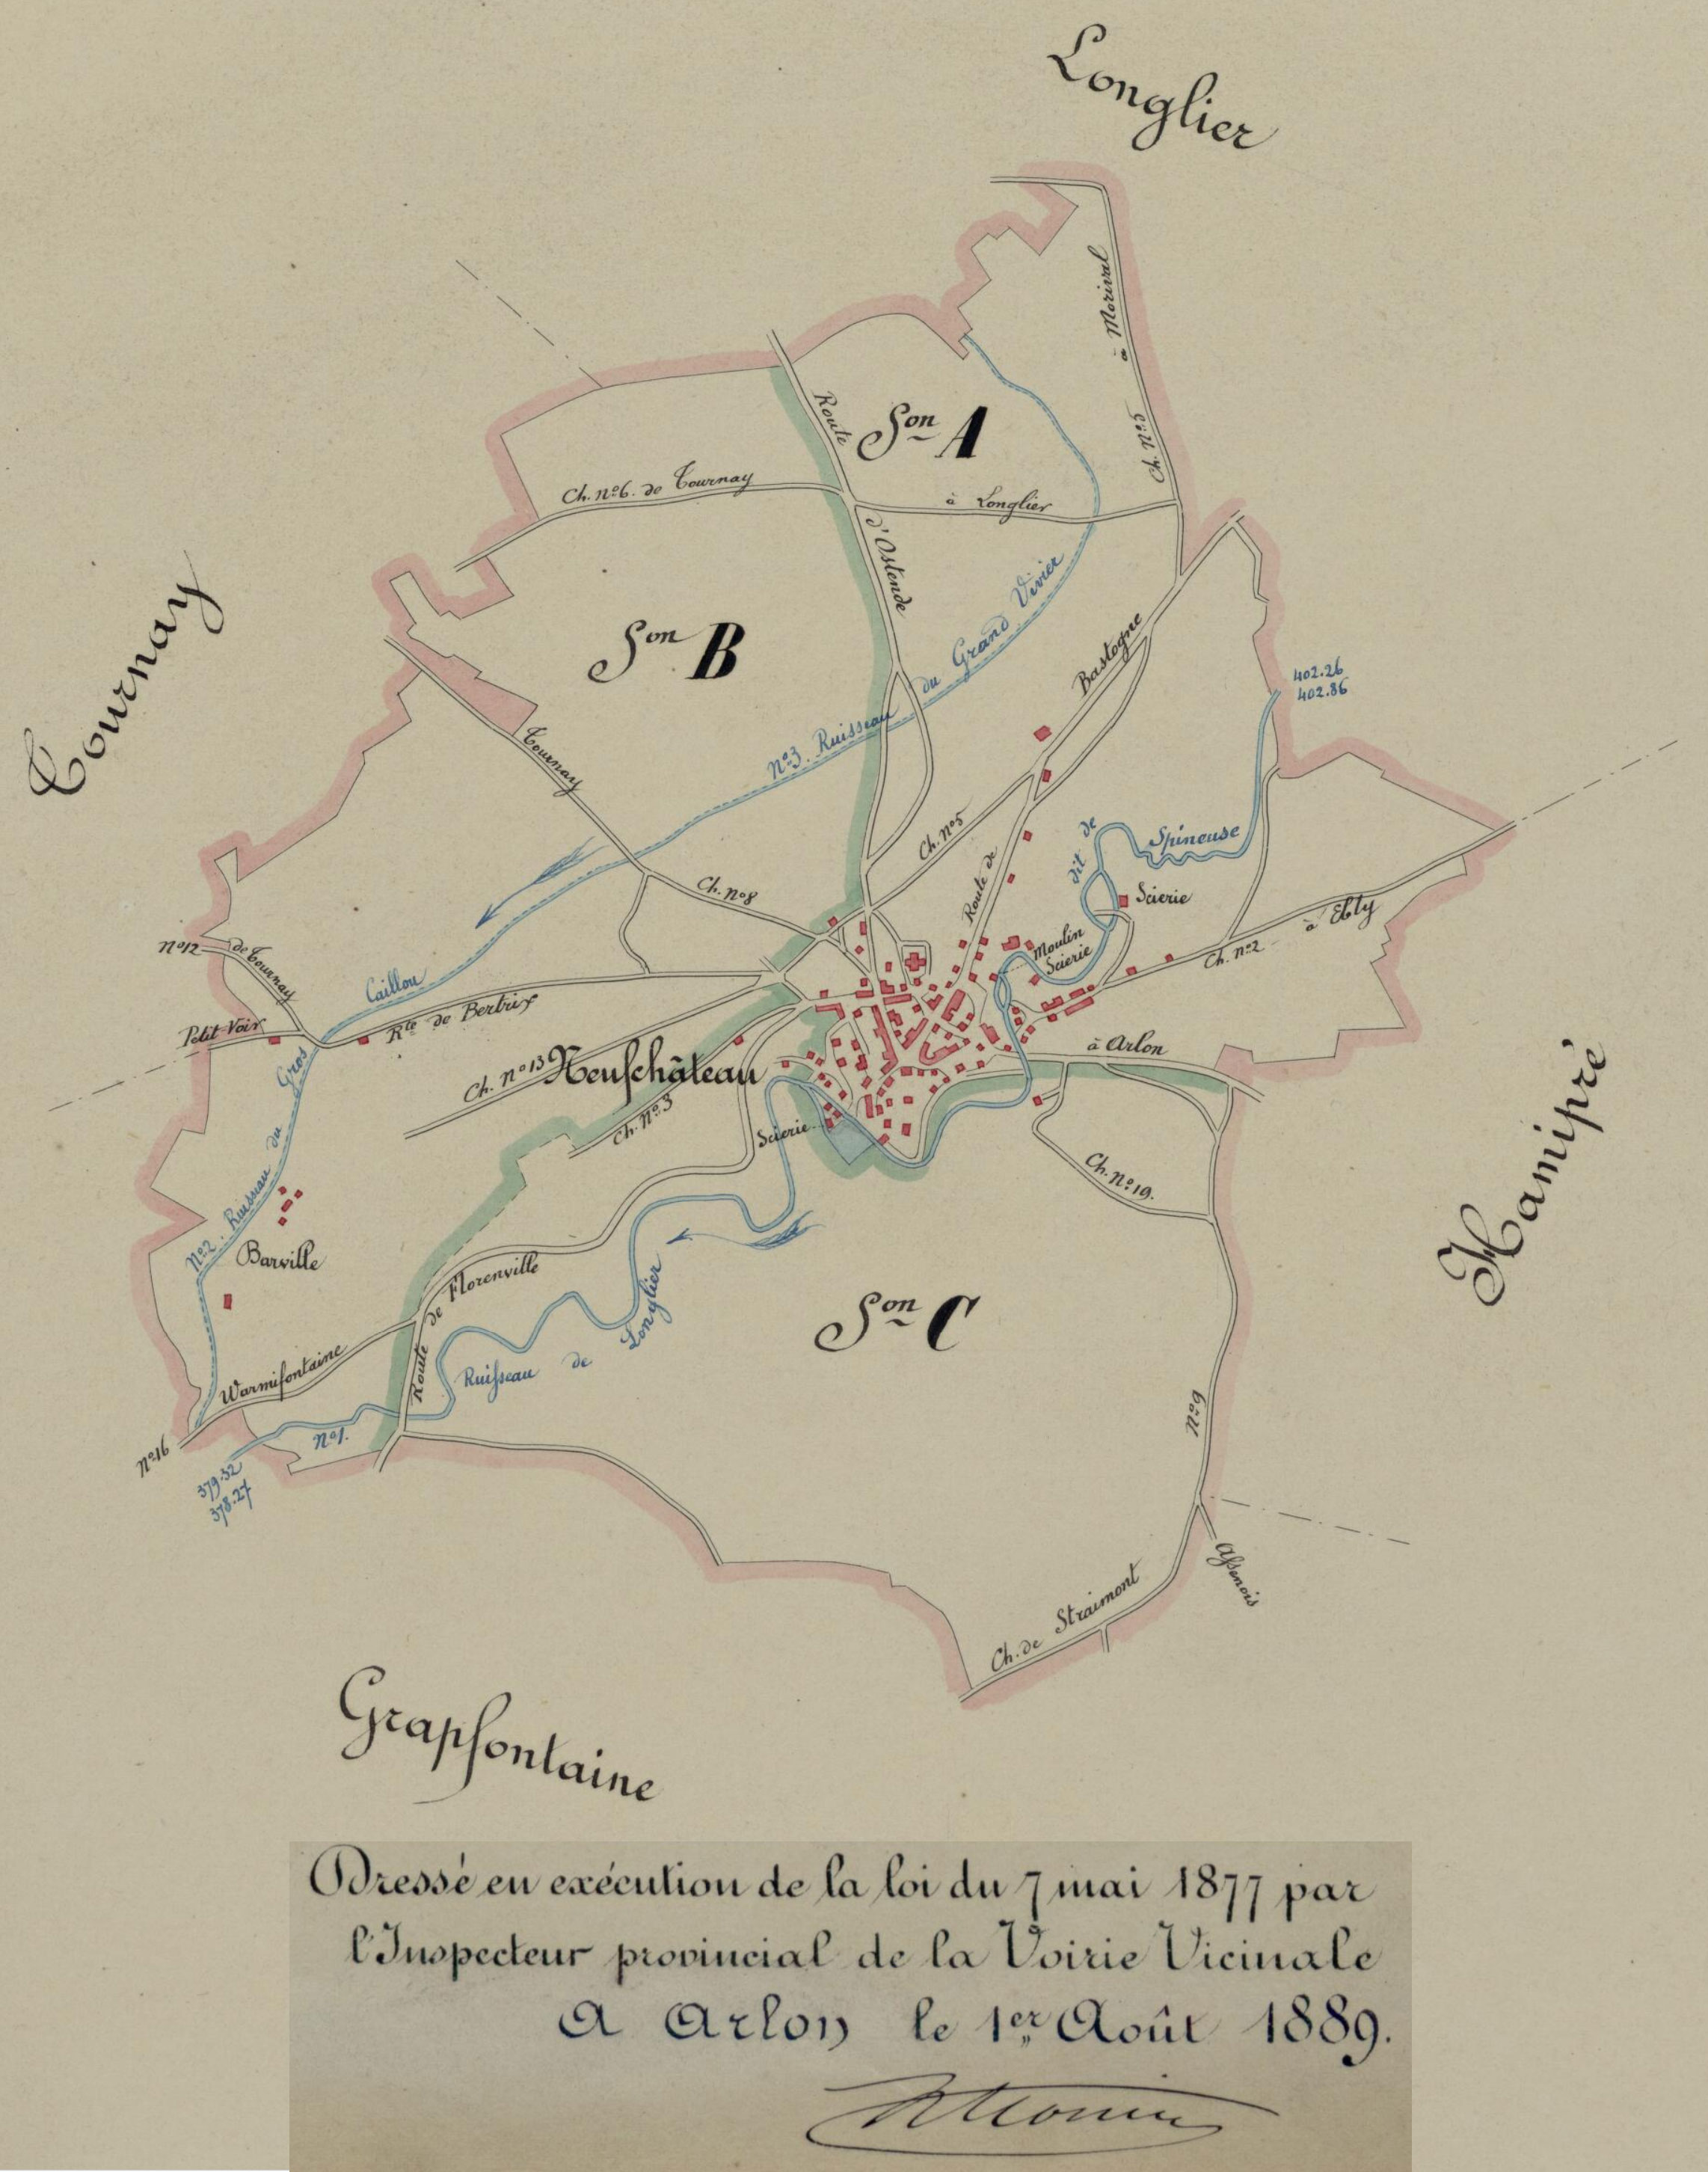 Longlier
à Morival
Ch. N°5
Son A
Route
d'Ostende
Ch. n°6. de Tournay
à Longlier
Tournay
Son B
du Grand Vivier
N°3. Ruisseau
Bastogne
402.26
402.86
Tournay
Ch. N°5
Route de
dit de
Spineuse
Scierie
Ch. n°8
à Ebly
Ch. n°2
Moulin
Scierie
N°12
de Tournay
Caillou
Petit Voir
Rte de Bertrix
à Arlon
Ch. n°13
Neufchâteau
Gros
Ch. N°3
Scierie
Hamipré
N°2. Ruisseau du
Ch. N°19.
Barville
de Florenville
Route
Longlier
Ruisseau de
Son C
Warmifontaine
N°1.
N°16
N°9
379.32
378.27
Assenois
Ch. de Straimont
Grapfontaine
Dressé en exécution de la loi du 7 mai 1877 par
l'Inspecteur provincial de la Voirie Vicinale
A Arlon le 1er Août 1889.